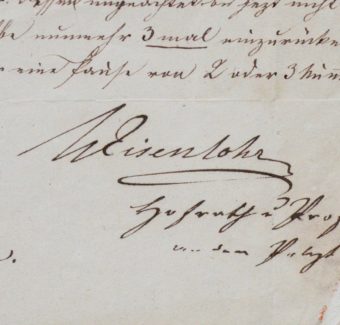 dessen ungeachtet bis jezt nicht
nunmehr 3 mal einzurücke
eine Pause von 2 oder 3 Num
W Eisenlohr
Hofrath u Prof
an dem Polyt